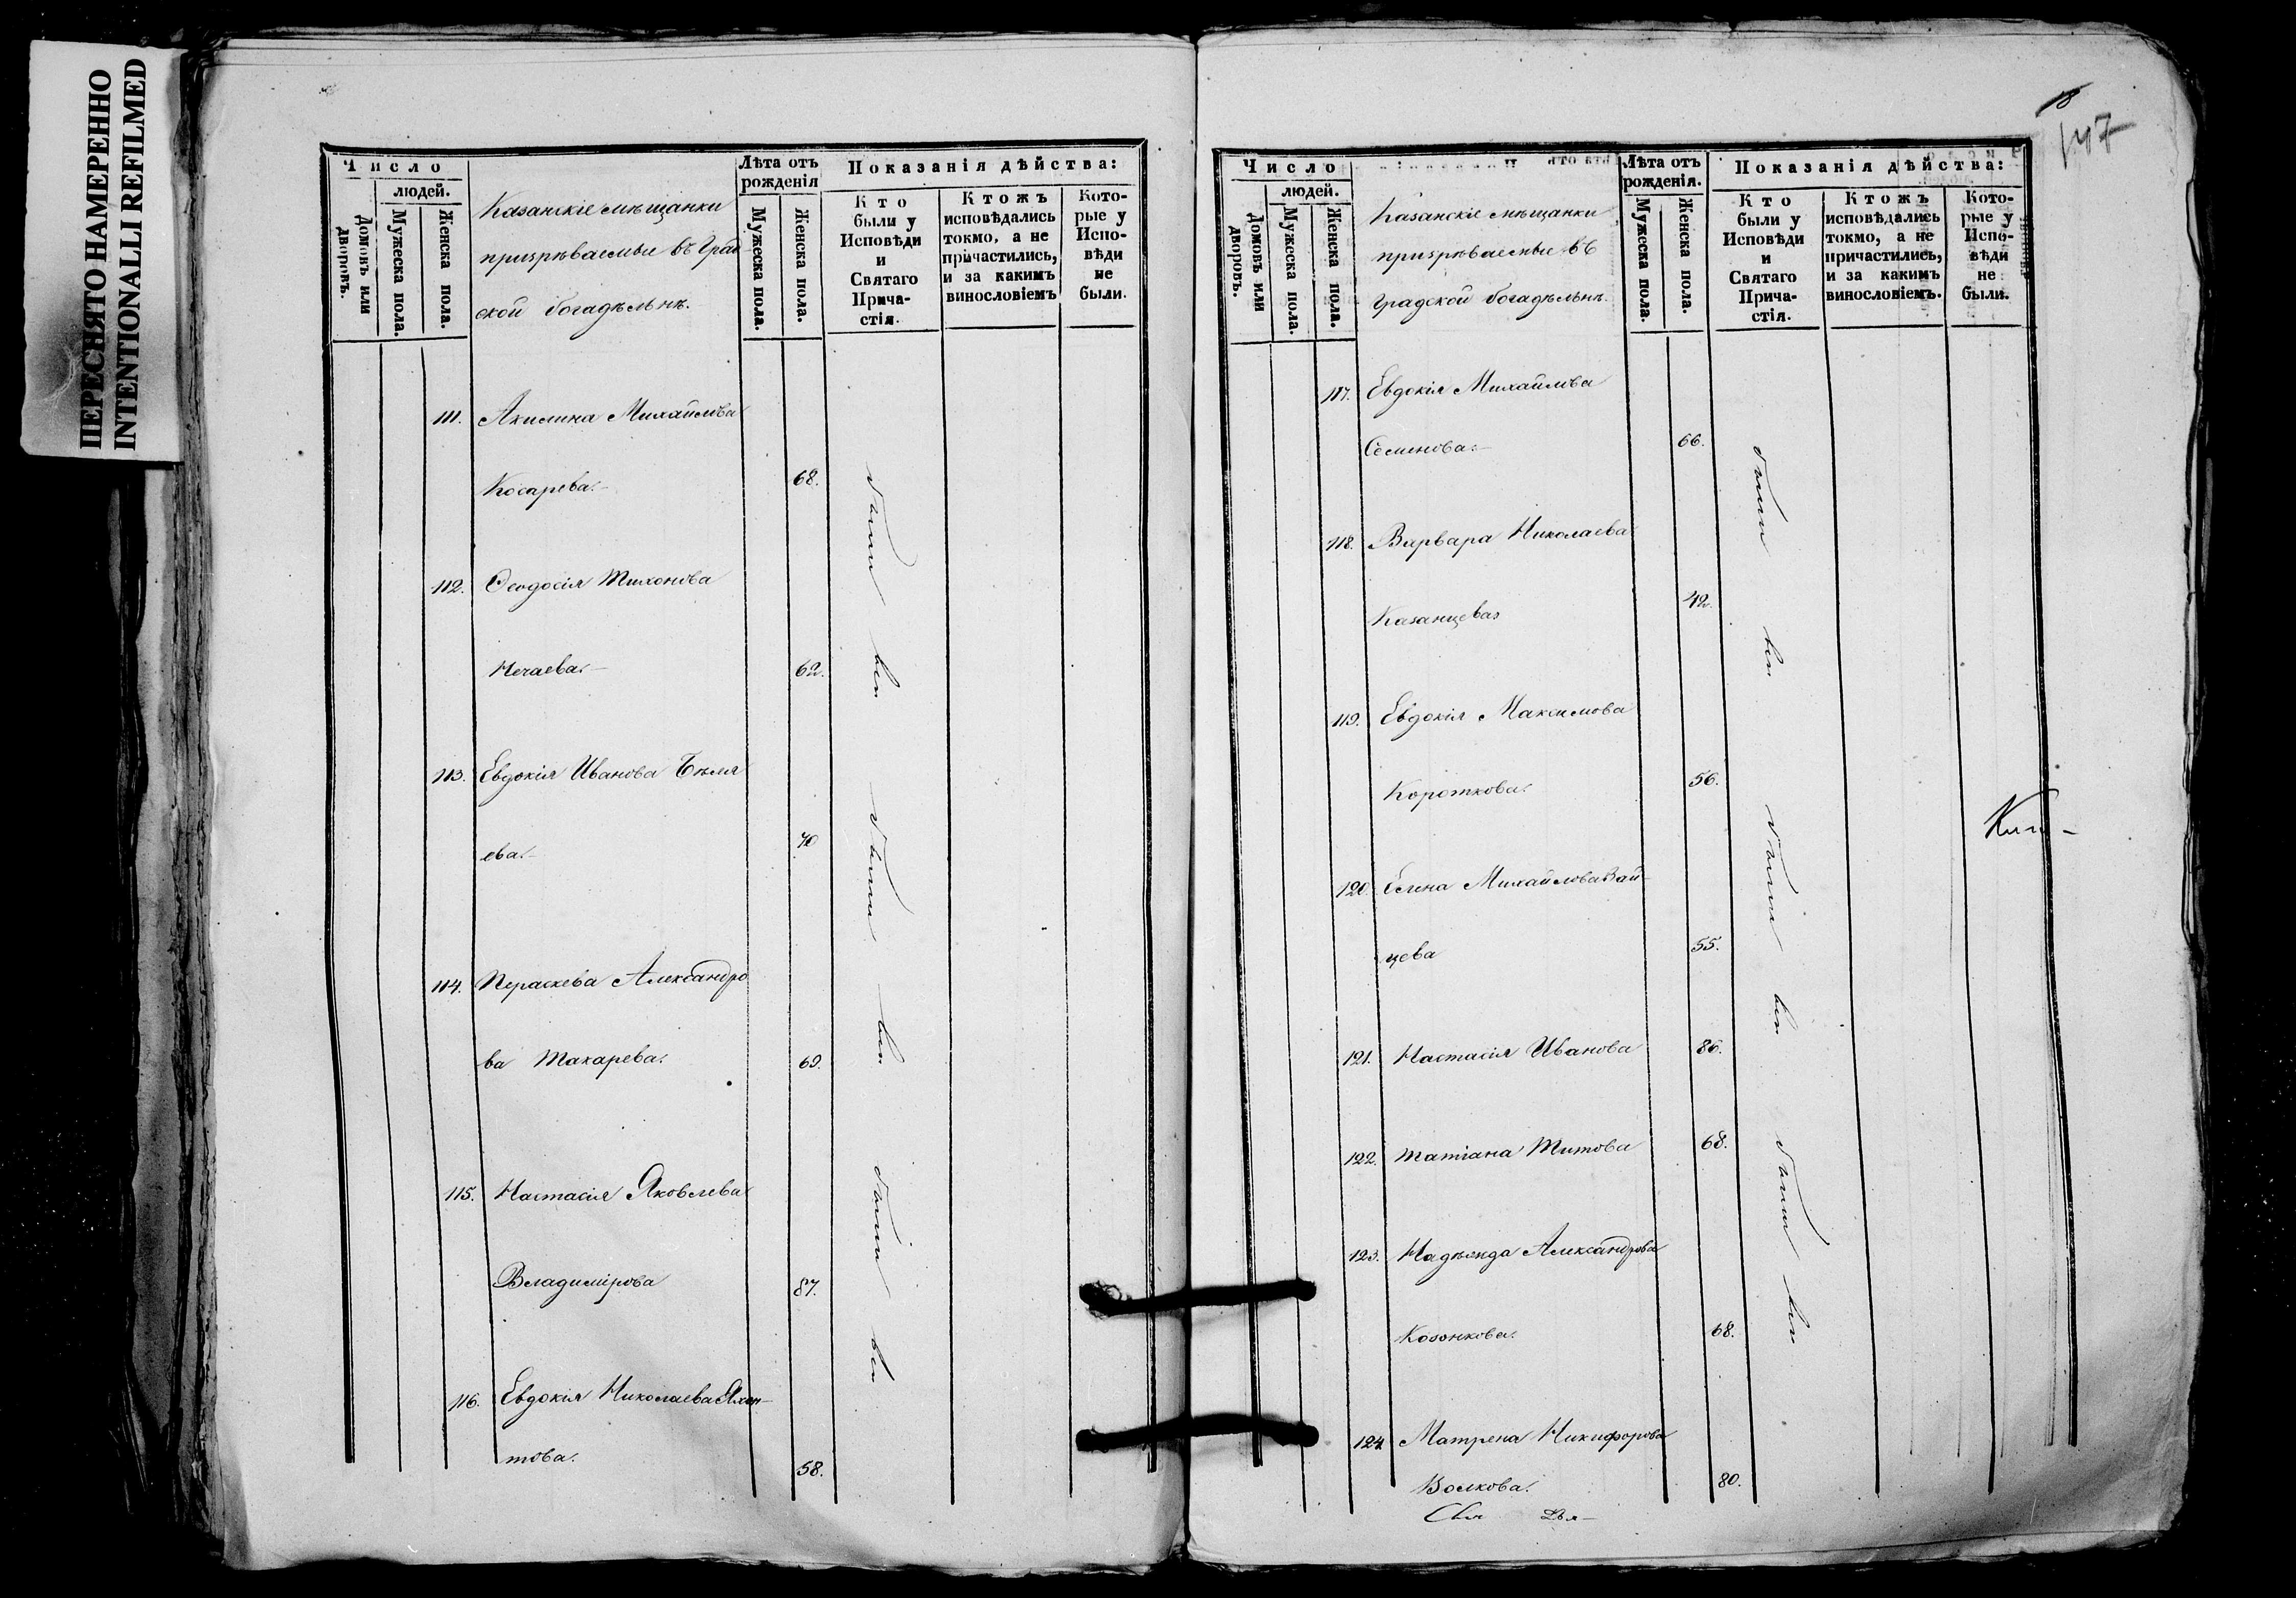 ПЕРЕСНЯТО НАМЕРЕННО
INTENTIONALLI REFILMED
Число
людей.
Домовъ или дворовъ.
Мужеска пола.
Женска пола.
Казанскіе мѣщанки
призрѣваемые въ Град
ской богадѣльнѣ.
Лѣта отъ
рожденія
Мужеска пола.
Женска пола.
Показанія дѣйства:
Кто
были у
Исповѣди
и
Святаго
Прича-
стія.
Ктожъ
исповѣдались
токмо, а не
причастились,
и за какимъ
винословіемъ
Кото-
рые у
Испо-
вѣди
не
были.
111. Акилина Михайлова
Косарева. 68.
112. Ѳеодосія Тихонова
Нечаева. 62.
113. Евдокія Иванова Бѣля
ева. 70
114. Пераскева Александро
ва Макарева. 69.
115. Настасія Яковлева
Владимірова 87.
116. Евдокія Николаева Яхон-
това. 58.
были всѣ
были всѣ
были всѣ
18
147
Число
людей.
Домовъ или дворовъ.
Мужеска пола.
Женска пола.
Казанскіе мѣщанки
призрѣваемые въ
Градской богадѣльнѣ.
Лѣта отъ
рожденія.
Мужеска пола.
Женска пола.
Показанія дѣйства:
Кто
были у
Исповѣди
и
Святаго
Прича-
стія.
Ктожъ
исповѣдались
токмо, а не
причастились,
и за какимъ
винословіемъ.
Кото-
рые у
Испо-
вѣди
не
были.
117. Евдокія Михайлова
Семенова. 66.
118. Варвара Николаева
Казанцева 42.
119. Евдокія Максимова
Короткова. 56.
120. Елена Михайлова Зай-
цева 55.
121. Настасія Иванова 86.
122. Татіана Титова 68.
123. Надѣжда Александрова
Козонкова. 68.
124 Матрена Никифорова
Волкова. 80.
были всѣ
были всѣ
были всѣ